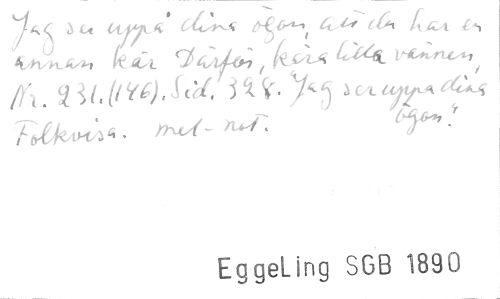 Jag ser uppå dina ögon, att du har en
annan kär Därför, kära lilla vännen,
Nr. 231. (146). Sid. 328. "Jag ser uppa dina
Folkvisa. mel-not. ögon."
EggeLing SGB 1890